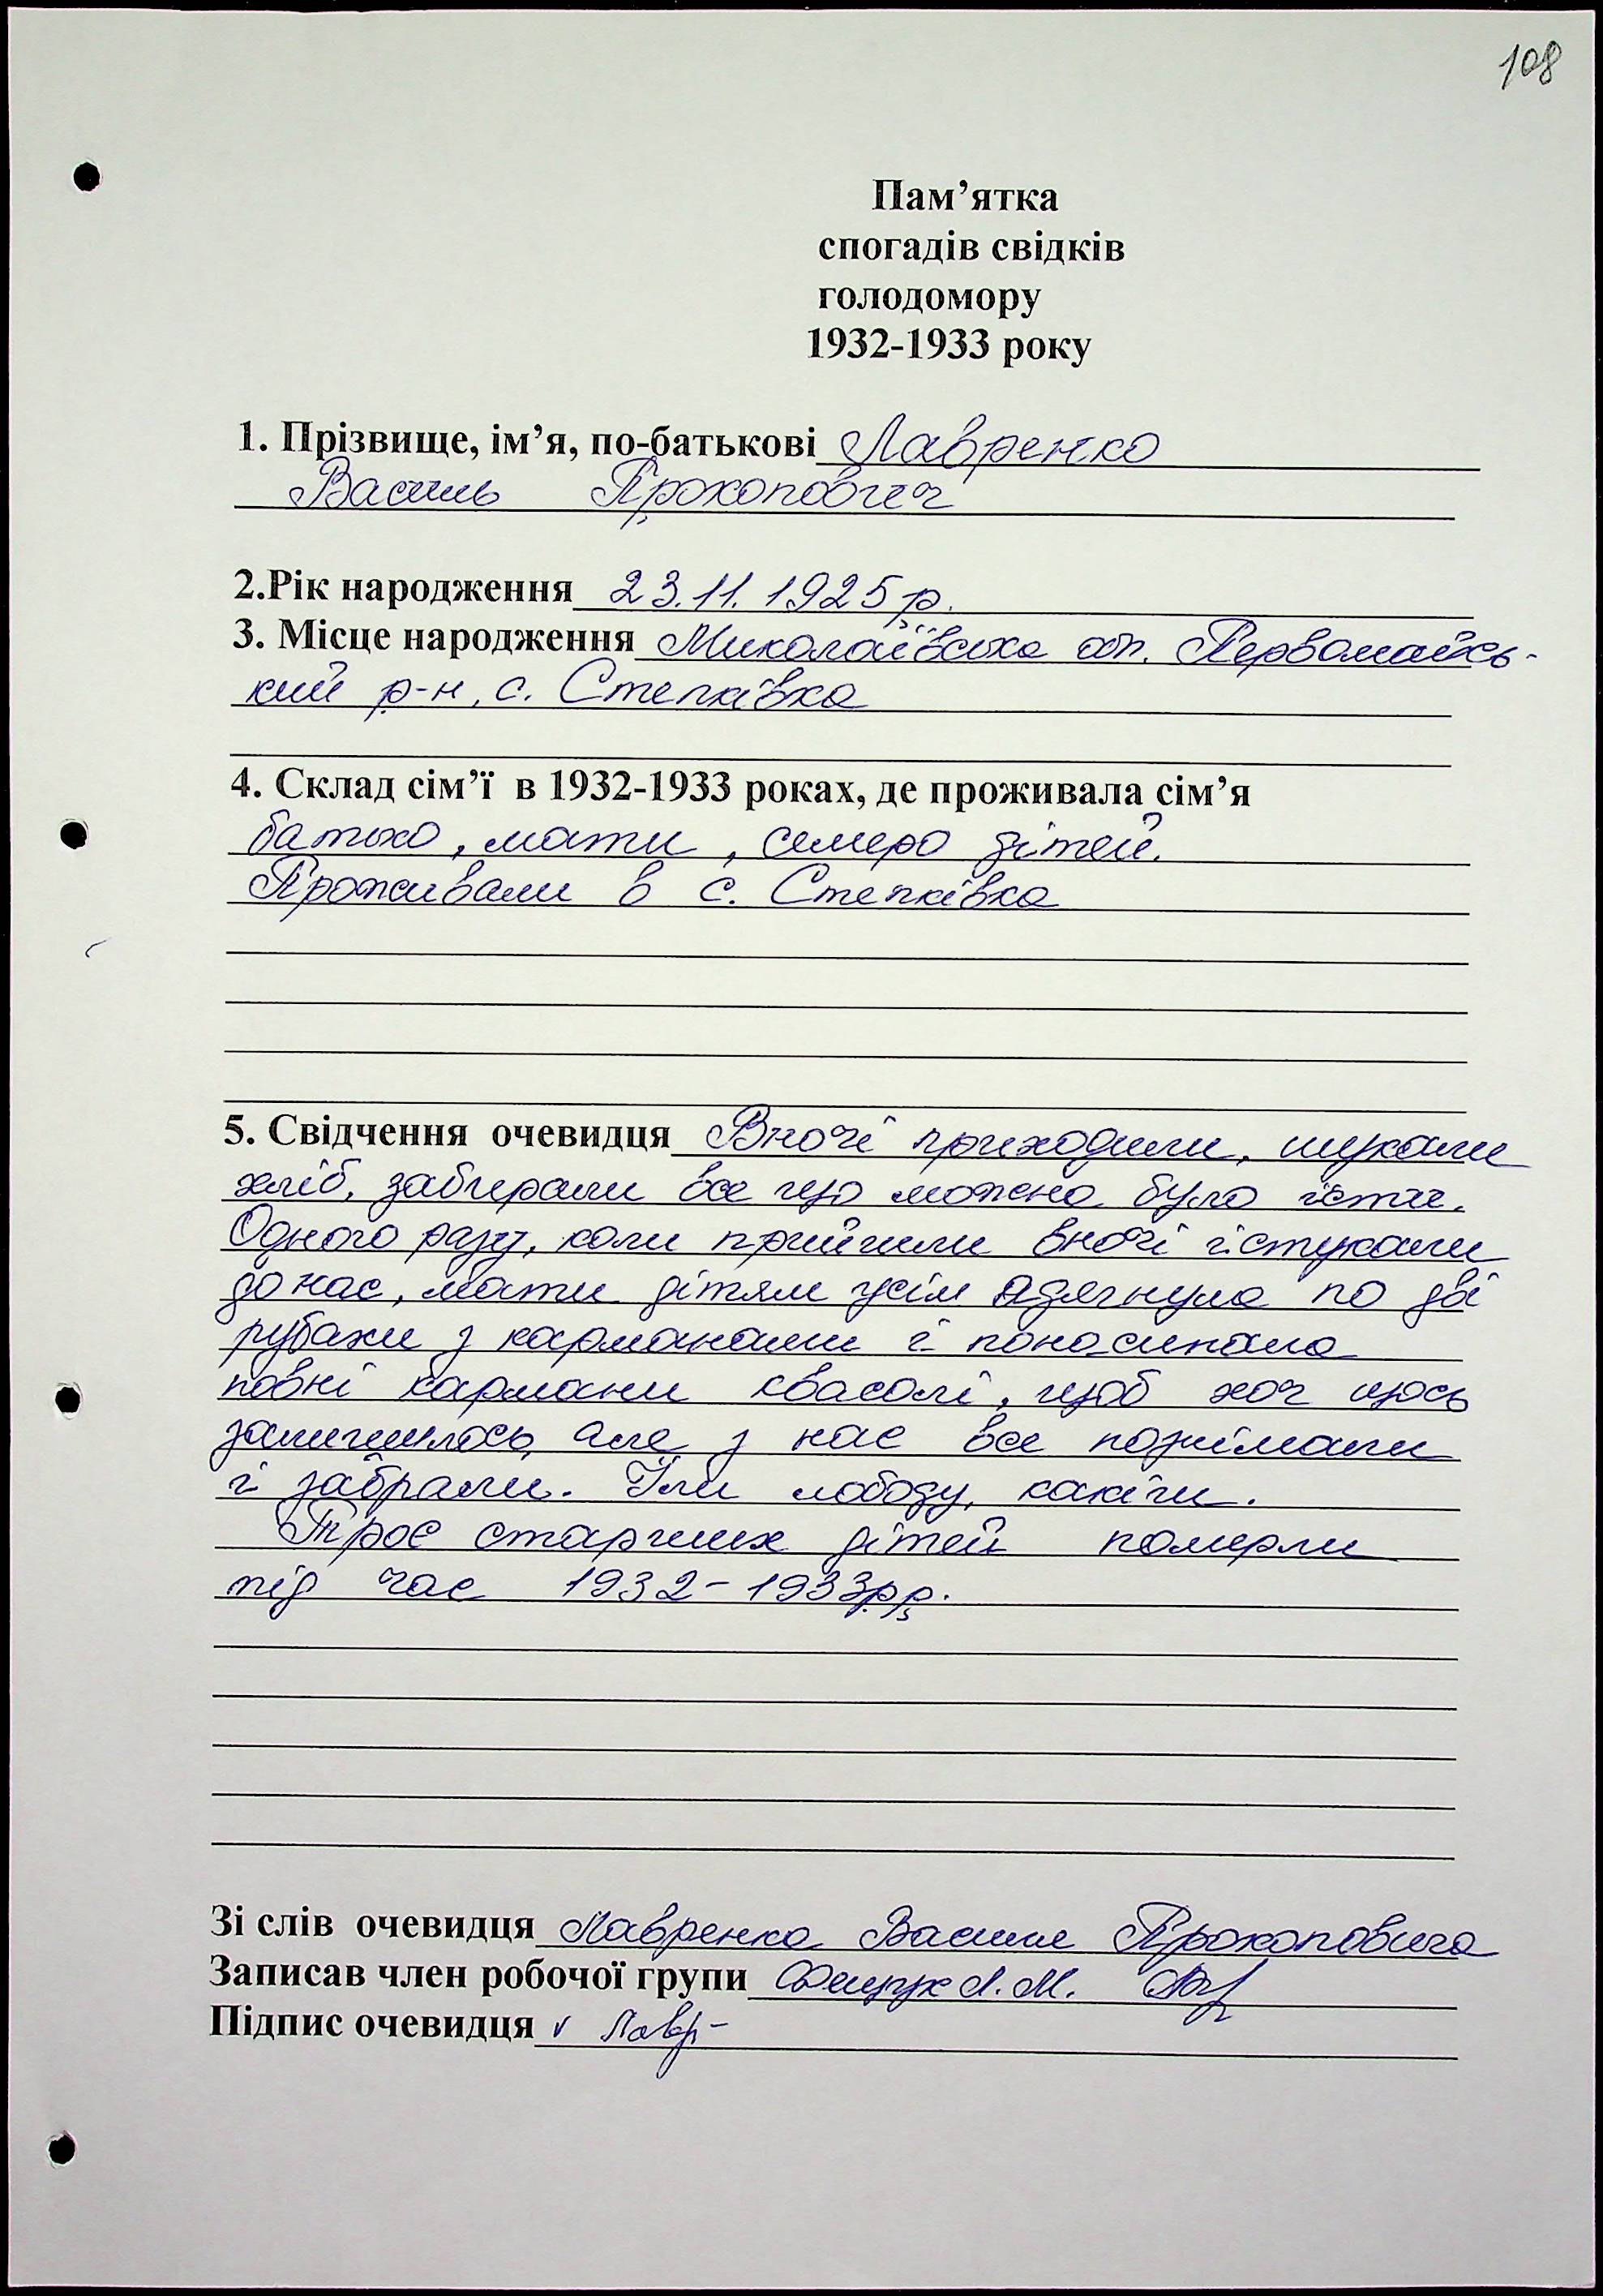 108
Пам’ятка
спогадів свідків
голодомору
1932-1933 року
1. Прізвище, ім’я, по-батькові Лавренко
Василь Прокопович
2.Рік народження 23.11.1925р.
3. Місце народження Миколаївська обл. Первомайсь-
кий р-н, с. Степківка
4. Склад сім’ї в 1932-1933 роках, де проживала сім’я
батько, мати, семеро дітей.
Проживали в с. Степківка
5. Свідчення очевидця Вночі приходили, шукали
хліб, забирали все що можна було їсти.
Одного разу, коли прийшли вночі і стукали
до нас, мати дітям усім одягнула по дві
рубахи з карманами і понасипала
повні кармани квасолі, щоб хоч щось
залишилось, але з нас все познімали
і забрали. Їли лободу, качани.
Троє старших дітей померли
під час 1932-1933рр.
Зі слів очевидця Лавренка Василя Прокоповича
Записав член робочої групи Л.М.
Підпис очевидця v Лавр-